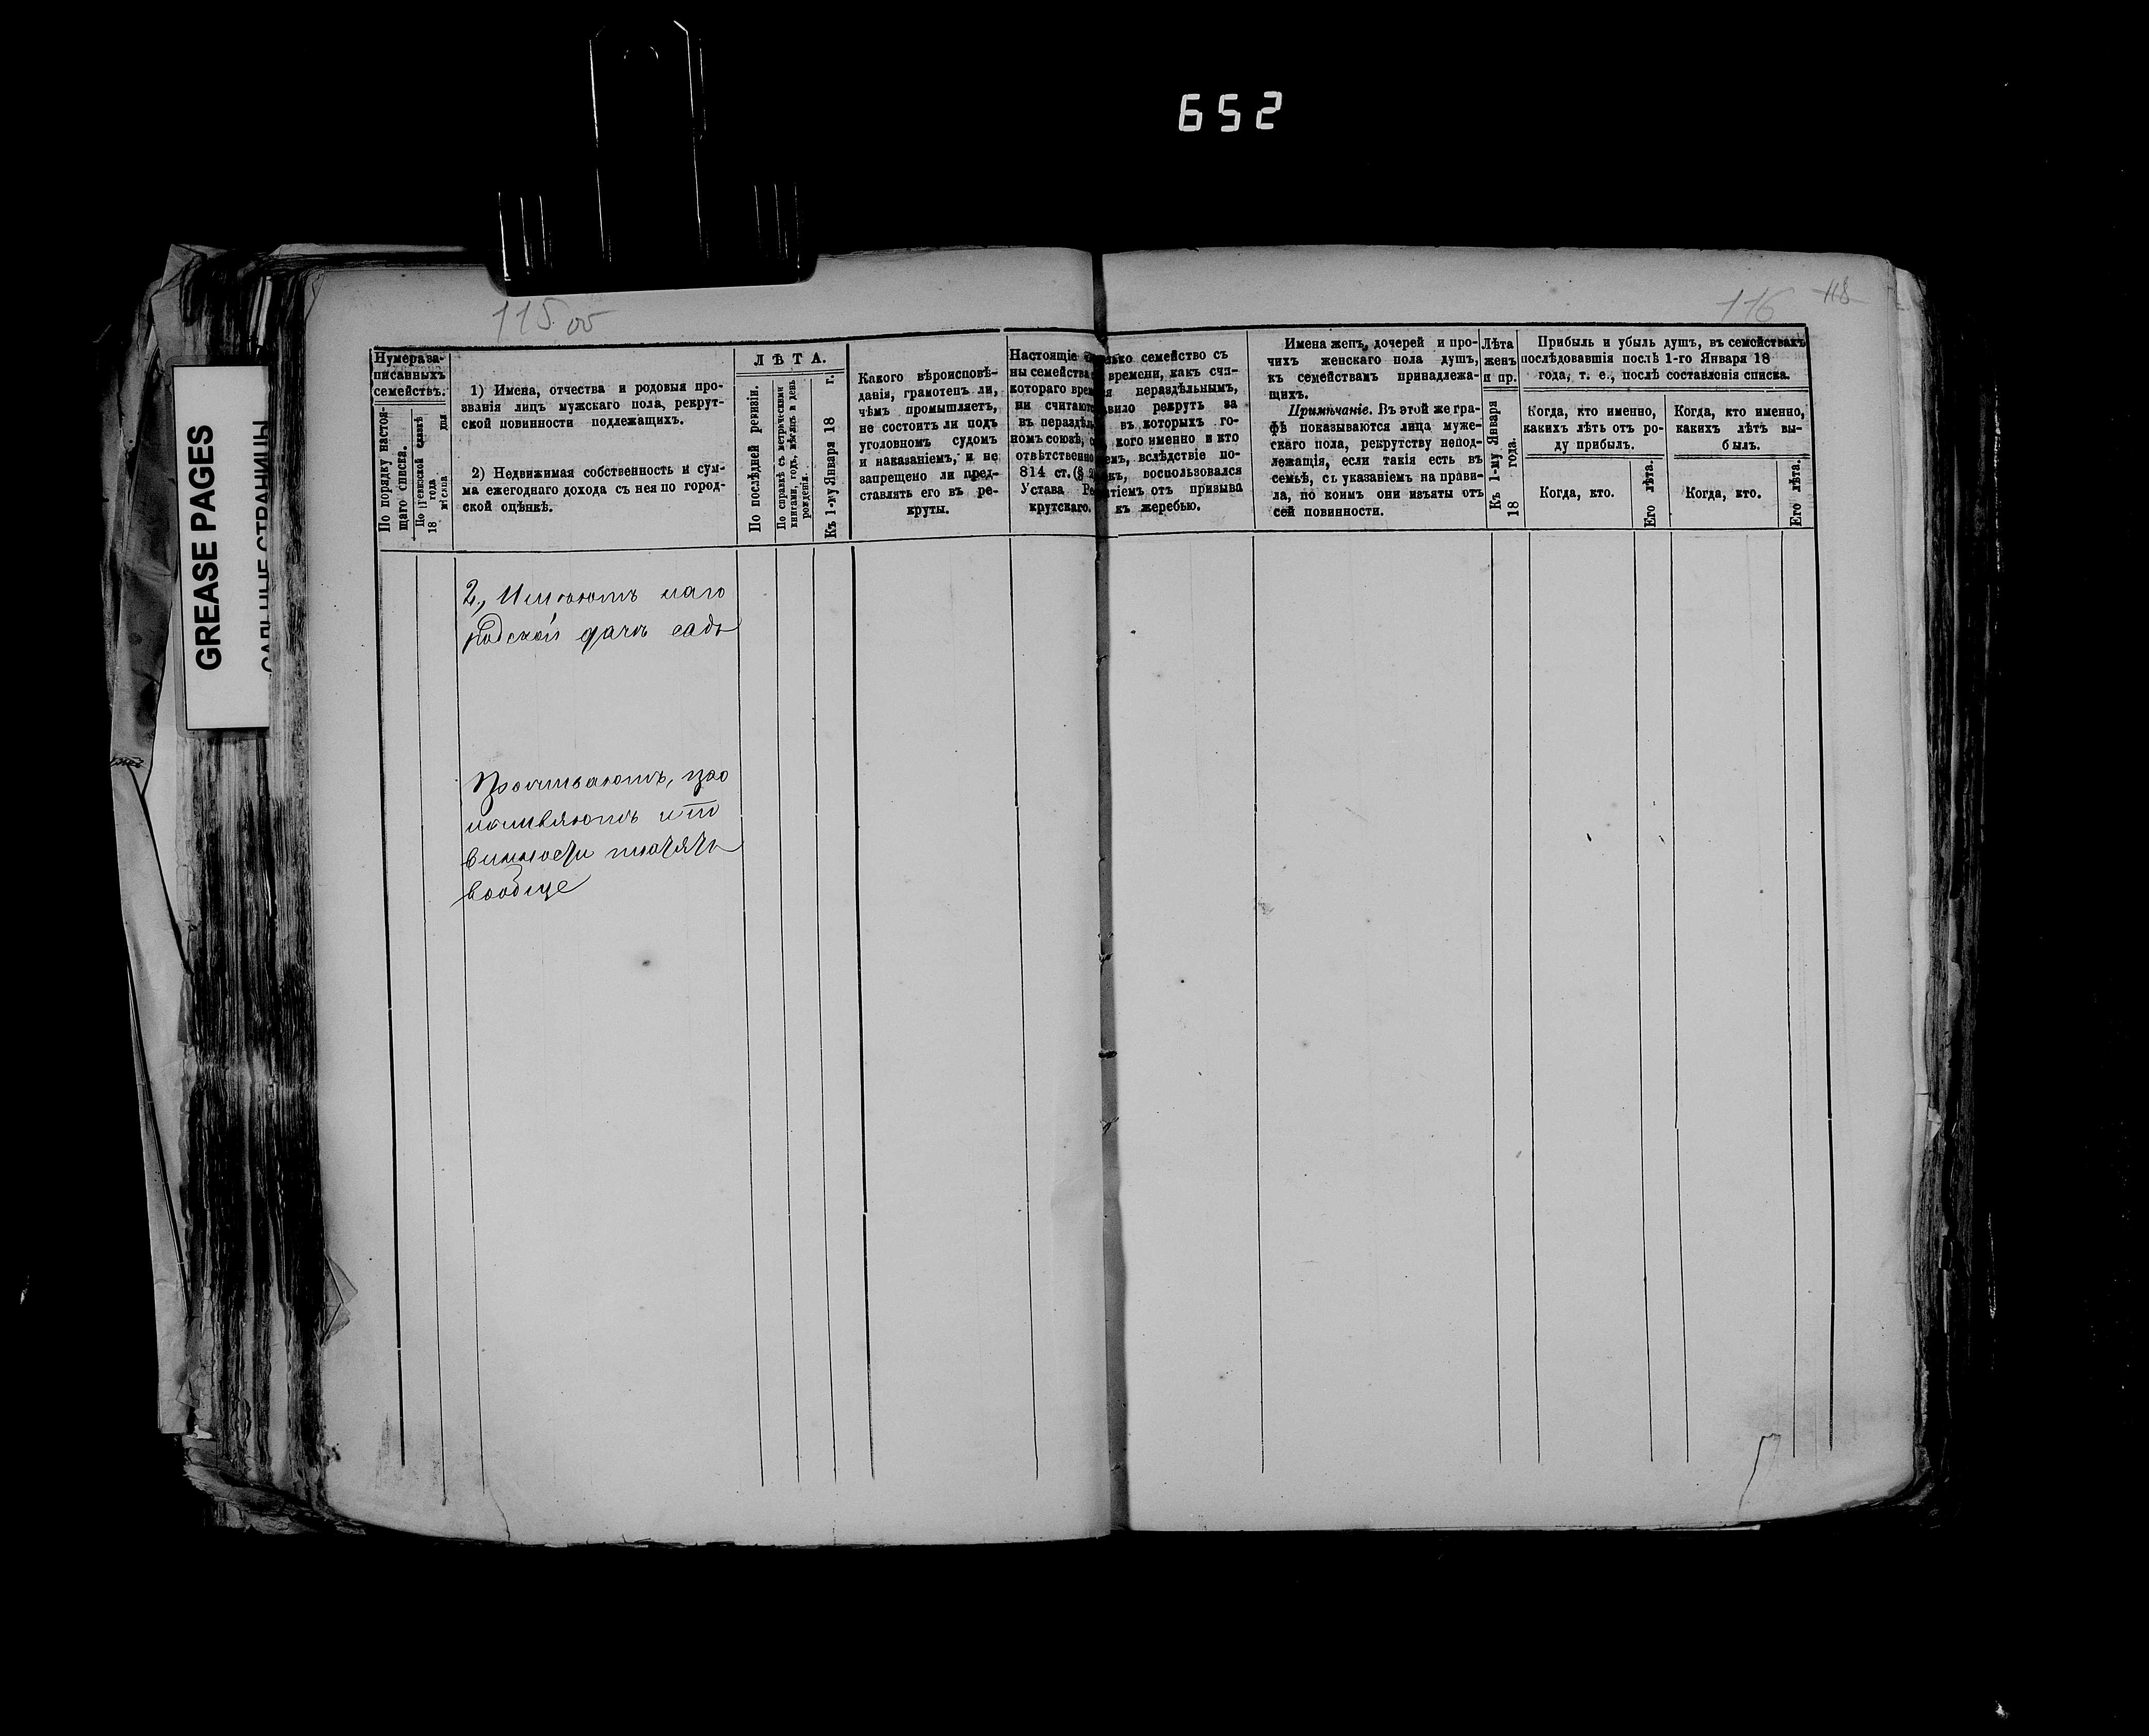 652
115 об
116
118
GREASE PAGES
САЛЬНЫЕ СТРАНИЦЫ
Нумера за-
писанныхъ
семействъ.
По порядку настоя-
щаго списка.
18 года
1) Имена, отчества и родовыя про-
званія лицъ мужскаго пола, рекрут-
ской повинности подлежащихъ.
2) Недвижимая собственность и сум-
ма ежегоднаго дохода съ нея по город-
ской оцѣнкѣ.
ЛѢТА.
По послѣдней ревизіи.
По справкѣ съ метрическими
книгами, годъ, мѣсяцъ и день
рожденія.
Къ 1-му Января 18 г.
Какого вѣроисповѣ-
данія, грамотенъ ли,
чѣмъ промышляетъ,
не состоитъ ли подъ
уголовномъ судомъ
и наказаніемъ, и не
запрещено ли пред-
ставлять его въ ре-
круты.
Настоящіе
ны семейства
котораго
ни считают
въ нераздѣл
номъ союзѣ,
отвѣтственно
814 ст. (§
Устава Ре
крутскаго.
лько семейство съ
времени, какъ счи-
я нераздѣльнымъ,
вило рекрутъ за
въ которыхъ го-
кого именно и кто
емъ, вслѣдствіе по-
къ, воспользовался
тіемъ отъ призыва
къ жеребью.
Имена женъ, дочерей и про-
чихъ женскаго пола душъ,
къ семействамъ принадлежа-
щихъ.
Примѣчаніе. Въ этой же гра-
фѣ показываются лица муже-
скаго пола, рекрутству непод-
лежащія, если такія есть въ
семьѣ, съ указаніемъ на прави-
ла, по коимъ они изъяты отъ
сей повинности.
Лѣта
женъ
и пр.
Къ 1-му Января
18 года.
Прибыль и убыль душъ, въ семействахъ
послѣдовавшія послѣ 1-го Января 18
года, т. е., послѣ составленія списка.
Когда, кто именно,
какихъ лѣтъ отъ ро-
ду прибылъ.
Когда, кто.
Его лѣта.
Когда, кто именно,
какихъ лѣтъ вы-
былъ.
Когда, кто.
Его лѣта.
2., Имѣютъ наго
родской дачѣ садъ
Проживаютъ, про
мышляютъ и по
винности платятъ
вообще